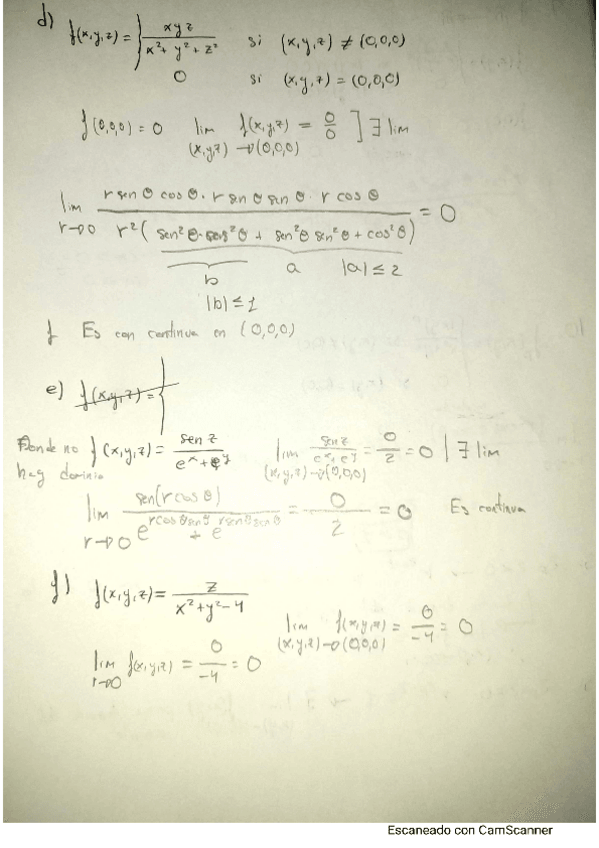 d) f(x,y,z) = { xyz / x² + y² + z² si (x,y,z) ≠ (0,0,0)
0 si (x,y,z) = (0,0,0)
f(0,0,0) = 0 lim (x,y,z) → (0,0,0) f(x,y,z) = 0/0 ] ∃ lim
lim r→0 r sen θ cos θ · r sen θ sen θ · r cos θ / r² (sen² θ · cos² θ + sen² θ sen² θ + cos² θ) = 0
b a |a| ≤ 2
|b| ≤ 1
f Es con continua en (0,0,0)
e) f(x,y,z) = {
Donde no f(x,y,z) = sen z / e^x + e^y lim (x,y,z) → (0,0,0) sen z / e^x + e^y = 0/2 = 0 | ∃ lim
hay dominio
lim r→0 sen(r cos θ) / e^(r cos θ sen θ) + e^(r sen θ sen θ) = 0/2 = 0 Es continua
f) f(x,y,z) = z / x² + y² - 4 lim (x,y,z) → (0,0,0) f(x,y,z) = 0/-4 = 0
lim r→0 f(x,y,z) = 0/-4 = 0
Escaneado con CamScanner